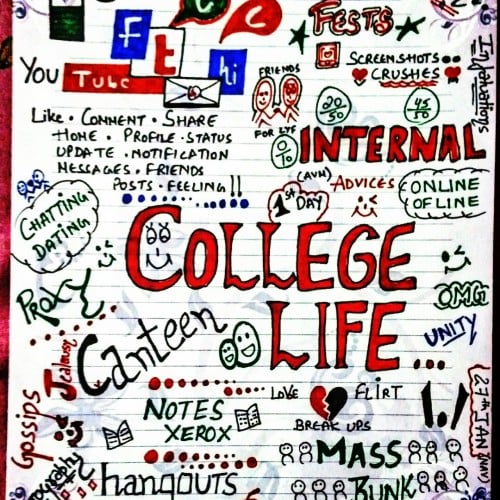 FESTS
f
t
hi
You Tube
SCREENSHOTS
CRUSHES
FRIENDS
FOR LYF
20/50
45/50
0/10
INTERNAL
Like • COMMENT • SHARE
HOME • PROFILE • STATUS
UPDATE • NOTIFICATION
MESSAGES • FRIENDS
POSTS • FEELING!!
(AVM)
ADVICES
1st DAY
ONLINE
OFLINE
CHATTING
DATING
COLLEGE
LIFE...
PROXY
OMG
UNITY
Canteen
Jealousy
Gossips
LOVE
FLIRT
BREAK UPS
NOTES
XEROX
MASS
BUNK
hangouts